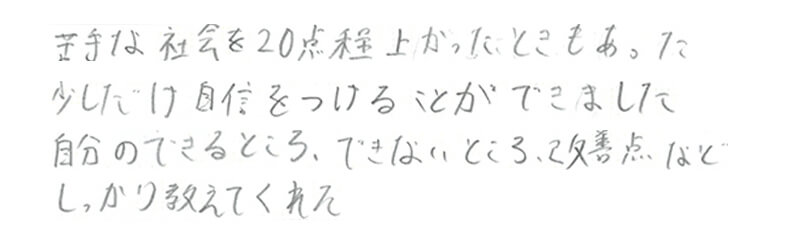 苦手な社会を20点程上かったときもあった
少しだけ自信をつけることができました
自分のできるところ、できないところ、改善点など
しっかり教えてくれた